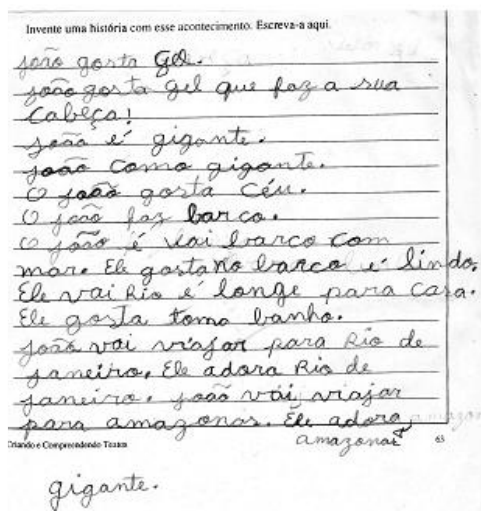 Invente uma história com esse acontecimento. Escreva-a aqui.
joão gosta Gel.
joão gosta gel que faz a sua
Cabeça!
joão é gigante.
joão como gigante.
O joão gosta Céu.
O joão faz barco.
O joão é vai barco com
mar. Ele gosta no barco é lindo.
Ele vai Rio é longe para casa.
Ele gosta toma banho.
joão vai viajar para Rio de
janeiro. Ele adora Rio de
janeiro. joão vai viajar
para amazonas. Ele adora
amazonas
Criando e Compreendendo Textos 63
gigante.